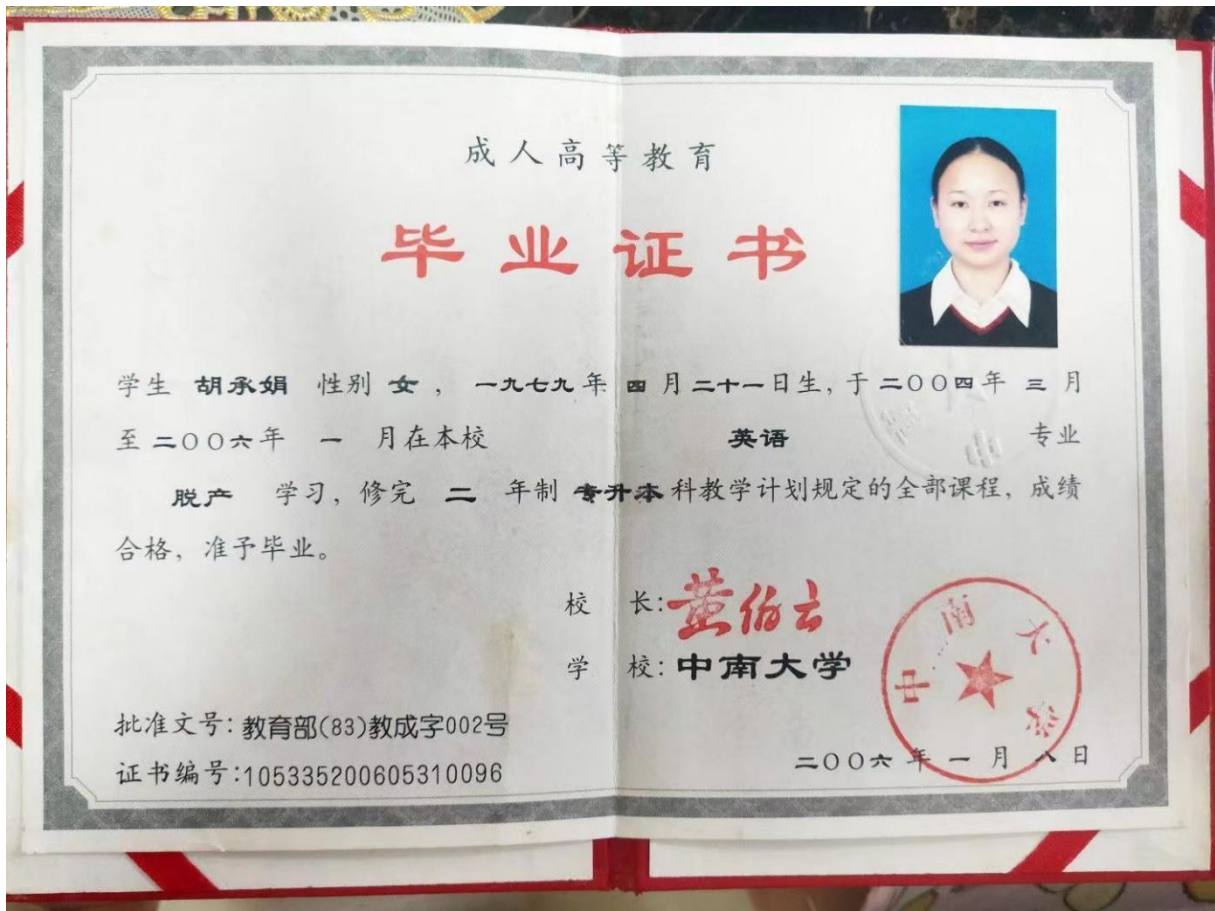 成人高等教育
毕业证书
学生 胡承娟 性别 女 ，一九七九年 四 月二十一日生，于二〇〇四年 三 月
至二〇〇六年 一 月在本校 英语 专业
脱产 学习，修完 二 年制 专升本科教学计划规定的全部课程，成绩
合格，准予毕业。
校 长：黄伯云
学 校：中南大学
中南大学
批准文号：教育部(83)教成字002号
二〇〇六年一月八日
证书编号：105335200605310096